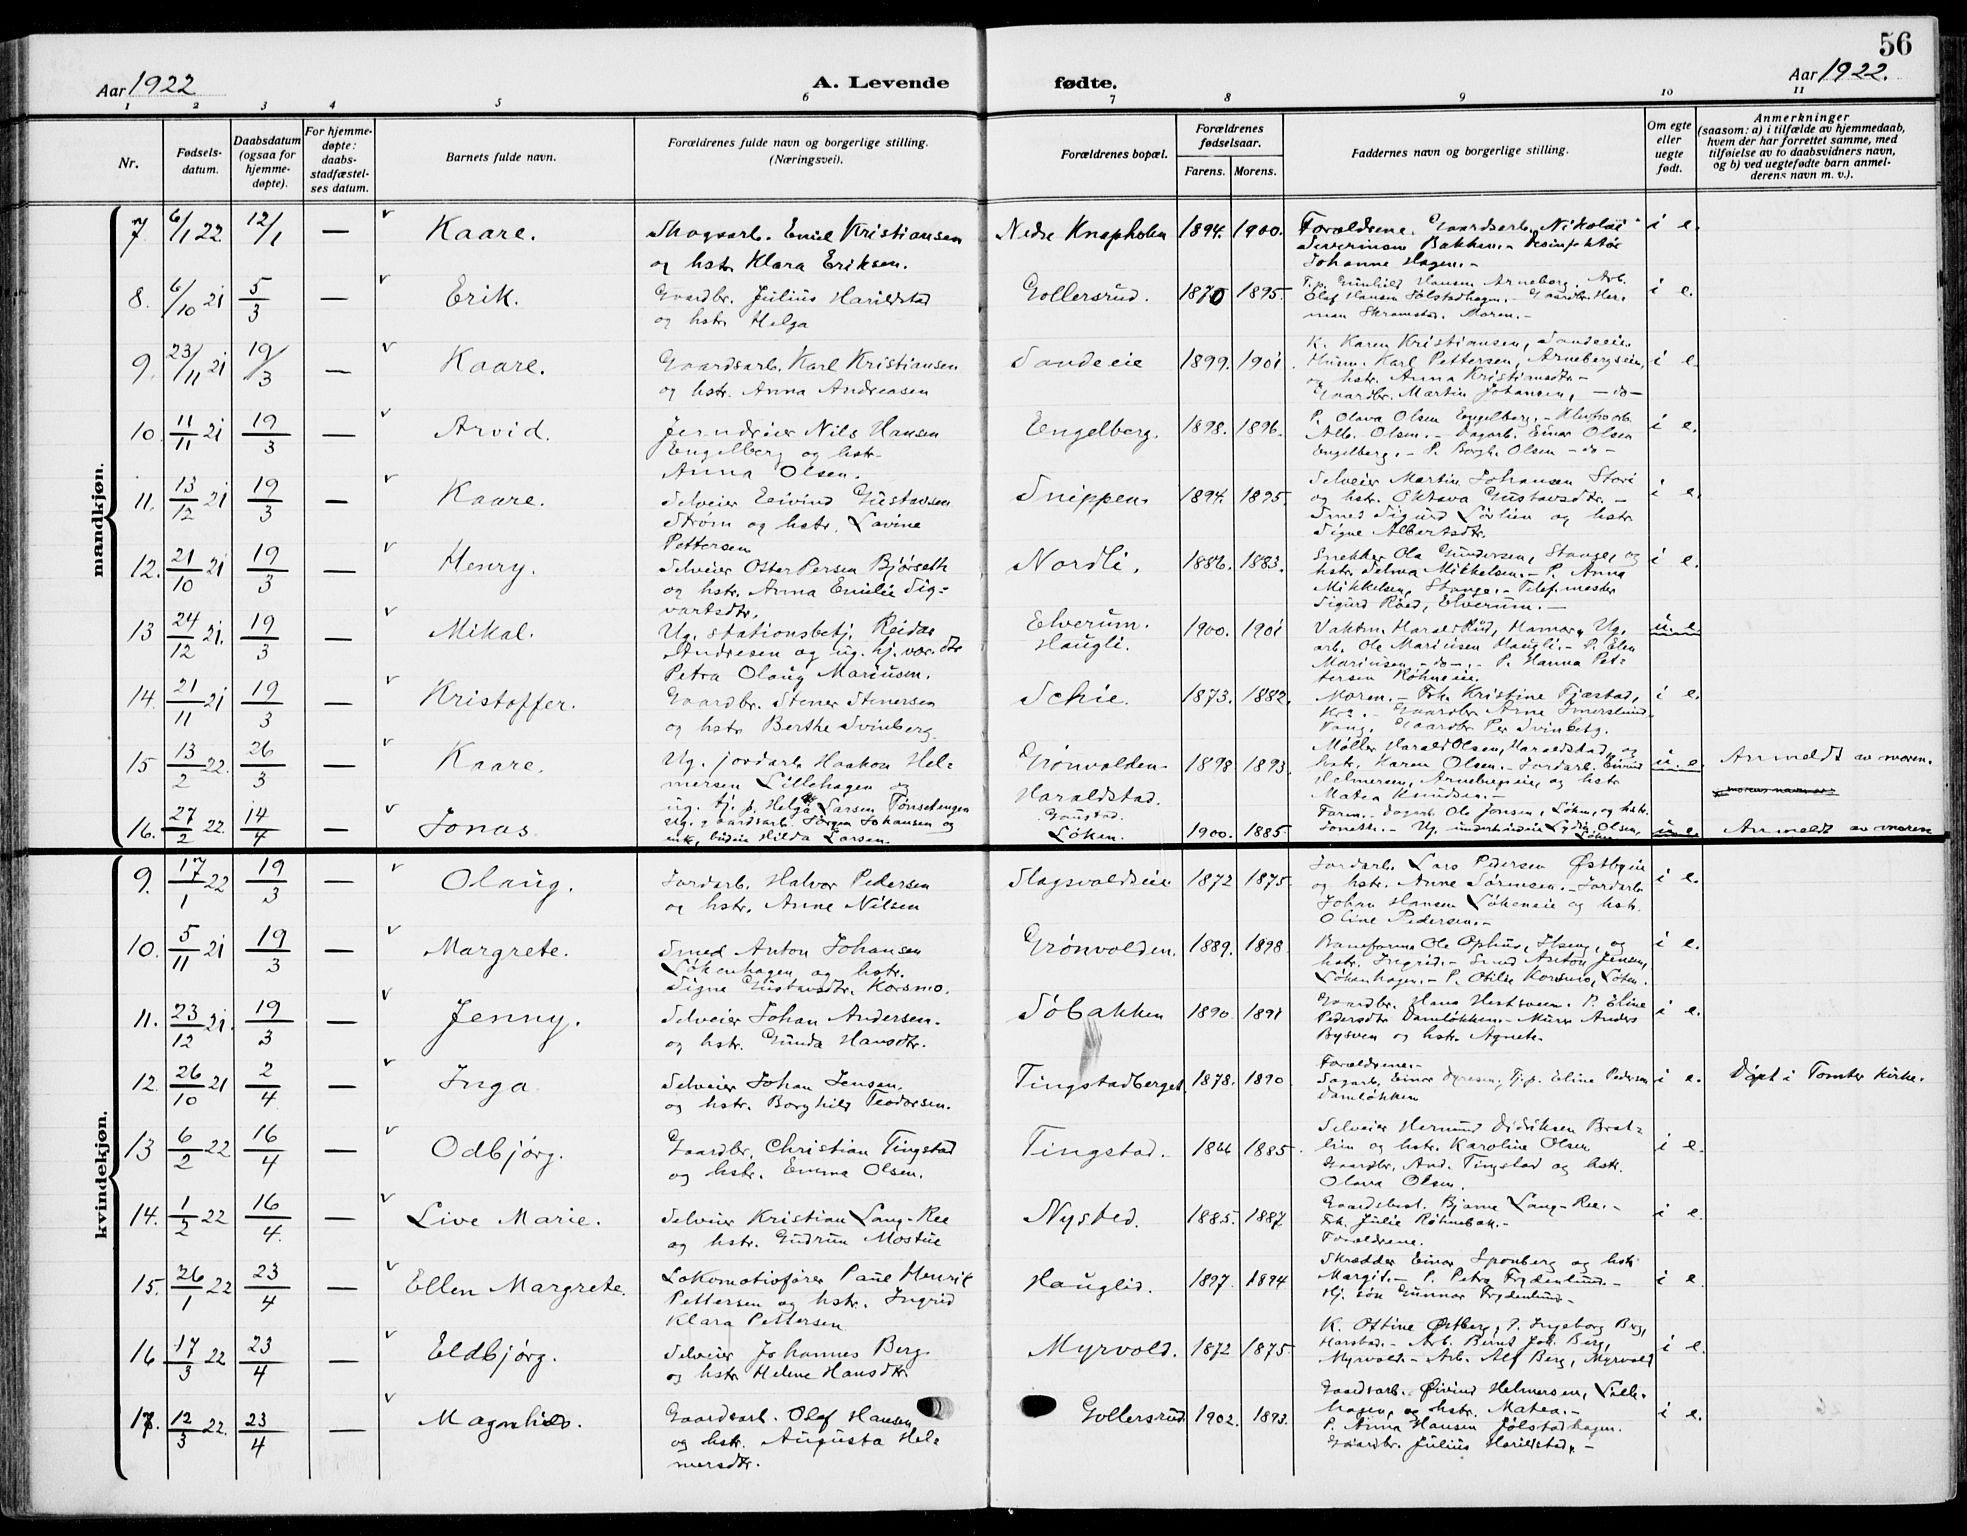 56
Aar 1922
A. Levende
fødte.
Aar 1922.
1 2 3 4 5 6 7 8 9 10 11
Nr.
Fødsels-
datum.
Daabsdatum
(ogsaa for
hjemme-
døpte).
For hjemme-
døpte:
daabs-
stadfæstel-
ses datum.
Barnets fulde navn.
Forældrenes fulde navn og borgerlige stilling.
(Næringsvei).
Forældrenes bopæl.
Forældrenes
fødselsaar.
Farens. Morens.
Faddernes navn og borgerlige stilling.
Om egte
eller
uegte
født.
Anmerkninger
(saasom: a) i tilfælde av hjemmedaab,
hvem der har forrettet samme, med
tilføielse av to daabsvidners navn,
og b) ved uegtefødte barn anmel-
derens navn m. v.).
mandkjøn.
7 6/1 22 12/1 — Kaare. Skogsarb. Emil Kristiansen Nedre Knapholen 1894. 1900. Forældrene. Gaardsarb. Nikolai i e.
og hstr. Klara Eriksen. Severinsen Bakken. - Desinfektør
Johanne Hagen. -
8. 6/10 21 5/3 — Erik. Gaardbr. Julius Harildstad Gollersrud. 1870 1895. T.p. Gunhild Hansen Arneberg. Arb. i e.
og hstr. Helga Olaf Hansen Jølstadhagen. - Gaardbr. Her-
man Skramstad. Moren. -
9. 23/11 21 19/3 — Kaare. Gaardsarb. Karl Kristiansen Sandeeie 1899. 1901. K. Karen Kristiansen, Sandeeie. i e.
og hstr. Anna Andreasen Husm. Karl Pettersen, Arnebergseie,
og hstr. Anna Kristiansdtr. -
Gaardbr. Martin Johansen, — do —
10. 11/11 21 19/3 — Arvid. Jerndreier Nils Hansen Engelberg. 1898. 1896. P. Olava Olsen Engelberg. - i e.
Engelberg og hstr. Alb. Olsen. - Dagarb. Einar Olsen
Anna Olsen. Engelberg. - P. Borgh. Olsen — do —
11. 13/12 21 19/3 — Kaare. Selveier Eivind Gustavsen Snippen 1894. 1895. Selveier Martin Johansen Stori i e.
Strøm og hstr. Lavine og hstr. Oktava Gustavsdtr. -
Pettersen Smed Sigurd Løvlien og hstr.
Signe Albertsdtr.
12. 21/10 21 19/3 — Henry. Selveier Oster Persen Bjørseth Nordli. 1886. 1883. Snekker Ola Gundersen, Stange, og i e.
og hstr. Anna Emilie Sig- hstr. Selma Mikkelsen. - P. Anna
vartsdtr. Mikkelsen, Stange. - Telef.mester
Sigurd Røed, Elverum. —
13 24/12 21. 19/3 — Mikal. Ug. stationsbetj. Reidar Elverum. 1900. 1901 Vaktm. Harald Rud, Hamar. Ug. u. e.
Andresen og ug. hj. vær. dtr. Haugli. arb. Ole Mariusen Haugli. - P. Elen
Petra Olaug Mariusen. Mariusen — do —. - P. Hanna Pet-
tersen Røhneeie.
14. 21/11 21 19/3 — Kristoffer. Gaardbr. Stener Stenersen Schie. 1873. 1882. Moren. - Frk. Kristine Fjæstad, i e.
og hstr. Berthe Svinberg. Kra. - Gaardbr. Arne Imerslund
Vang, Gaardbr. Per Svinberg.
15 13/2 22. 26/3 — Kaare. Ug. jordarb. Haakon Hel- Grønvolden 1898 1893. Møller Harald Olsen, Haraldstad, og u. e. Anmeldt av moren.
mersen Lillehagen og Haraldstad. hstr. Karen Olsen. - Jordarb. Eivind
ug. tj. p. Helga Larsen Tønsetengen Helmersen, Arnebergeie og hstr.
Matea Knudsen. -
16. 27/2 22. 14/4 — Jonas. Ug. gaardsarb. Jørgen Johansen og Gaustad. Løken. 1900. 1885 Faren. - Dagarb. Ole Jonsen, Løken, og hstr. u. e. Anmeldt av moren
enke, budeie Hilda Larsen. Lydia Olsen,
Løken
kvindekjøn.
9. 17/1 22 19/3 — Olaug. Jordarb. Halvor Pedersen Slagsvoldseie 1872 1875. Jordarb. Lars Pedersen Østbyeie i e.
og hstr. Anne Nilsen og hstr. Anne Sørensen. - Jordarb.
Johan Hansen Løkeneie og hstr.
Oline Pedersen. -
10. 5/11 21 19/3 — Margrete. Smed Anton Johansen Grønvolden. 1889. 1898. Baneform. Ole Ophus, Ilseng, og i e.
Løkenhagen og hstr. hstr. Ingrid. - Smed Anton Jensen,
Signe Gustavsdtr. Korsmo. Løkenhagen. - P. Otilie Korsmo, Løten.
11. 23/12 21. 19/3 — Jenny. Selveier Johan Andersen. Søbakken 1890. 1891 Gaardbr. Hans Hestsveen. P. Eline i e.
og hstr. Gunda Hansdtr. Pedersdtr Damløkken. - Murer Anders
Bysven og hstr. Agnete.
12. 26/10 21 2/4 — Inga. Selveier Johan Jensen. Tingstadberget. 1878. 1890 Forældrene. - i e. Døpt i Tomter kirke.
og hstr. Borghild Teodorsen. Sagarb. Einar Dyresen, Tj.p. Eline Pedersen
Damløkken
13 6/2 22 16/4 — Odbjørg. Gaardbr. Christian Tingstad Tingstad. 1866 1885. Selveier Hermund Didriksen Brat- i e.
og hstr. Emma Olsen. lien og hstr. Karoline Olsen
Gaardbr. And. Tingstad og hstr.
Olava Olsen.
14. 1/2 22 16/4. — Live Marie. Selveier Kristian Lang-Ree Nysted. 1885. 1887. Gaardsbest. Bjarne Lang-Ree. - i e.
og hstr. Gudrun Mostue Frk. Julie Røhnebak. -
Forældrene.
15. 26/1 22 23/4 — Ellen Margrete. Lokomotivfører Paul Henrik Hauglid. 1897. 1894 Skrædder Einar Sponberg og hstr i e.
Pettersen og hstr. Ingrid Margit. - P. Petra Frydenlund. -
Klara Pettersen Hj. søn Gunnar Frydenlund -
16 17/3 22 23/4 — Eldbjørg. Selveier Johannes Berg. Myrvold. 1872 1875. K. Ottine Østberg, P. Ingeborg Berg, i e.
og hstr. Helene Hansdtr. Harstad. - Arb. Bernt Joh. Berg,
Myrvold. - Arb. Alf Berg, Myrvold
17. 12/3 22. 23/4 — Magnhild. Gaardsarb. Olaf Hansen Gollersrud 1902. 1893. Gaardsarb. Øivind Helmersen, Lille- i e.
og hstr. Augusta Hel- hagen, og hstr. Matea. -
mersdtr. P. Anna Hansen Jølstadhagen.
Gaardbr. Julius Harildstad. -